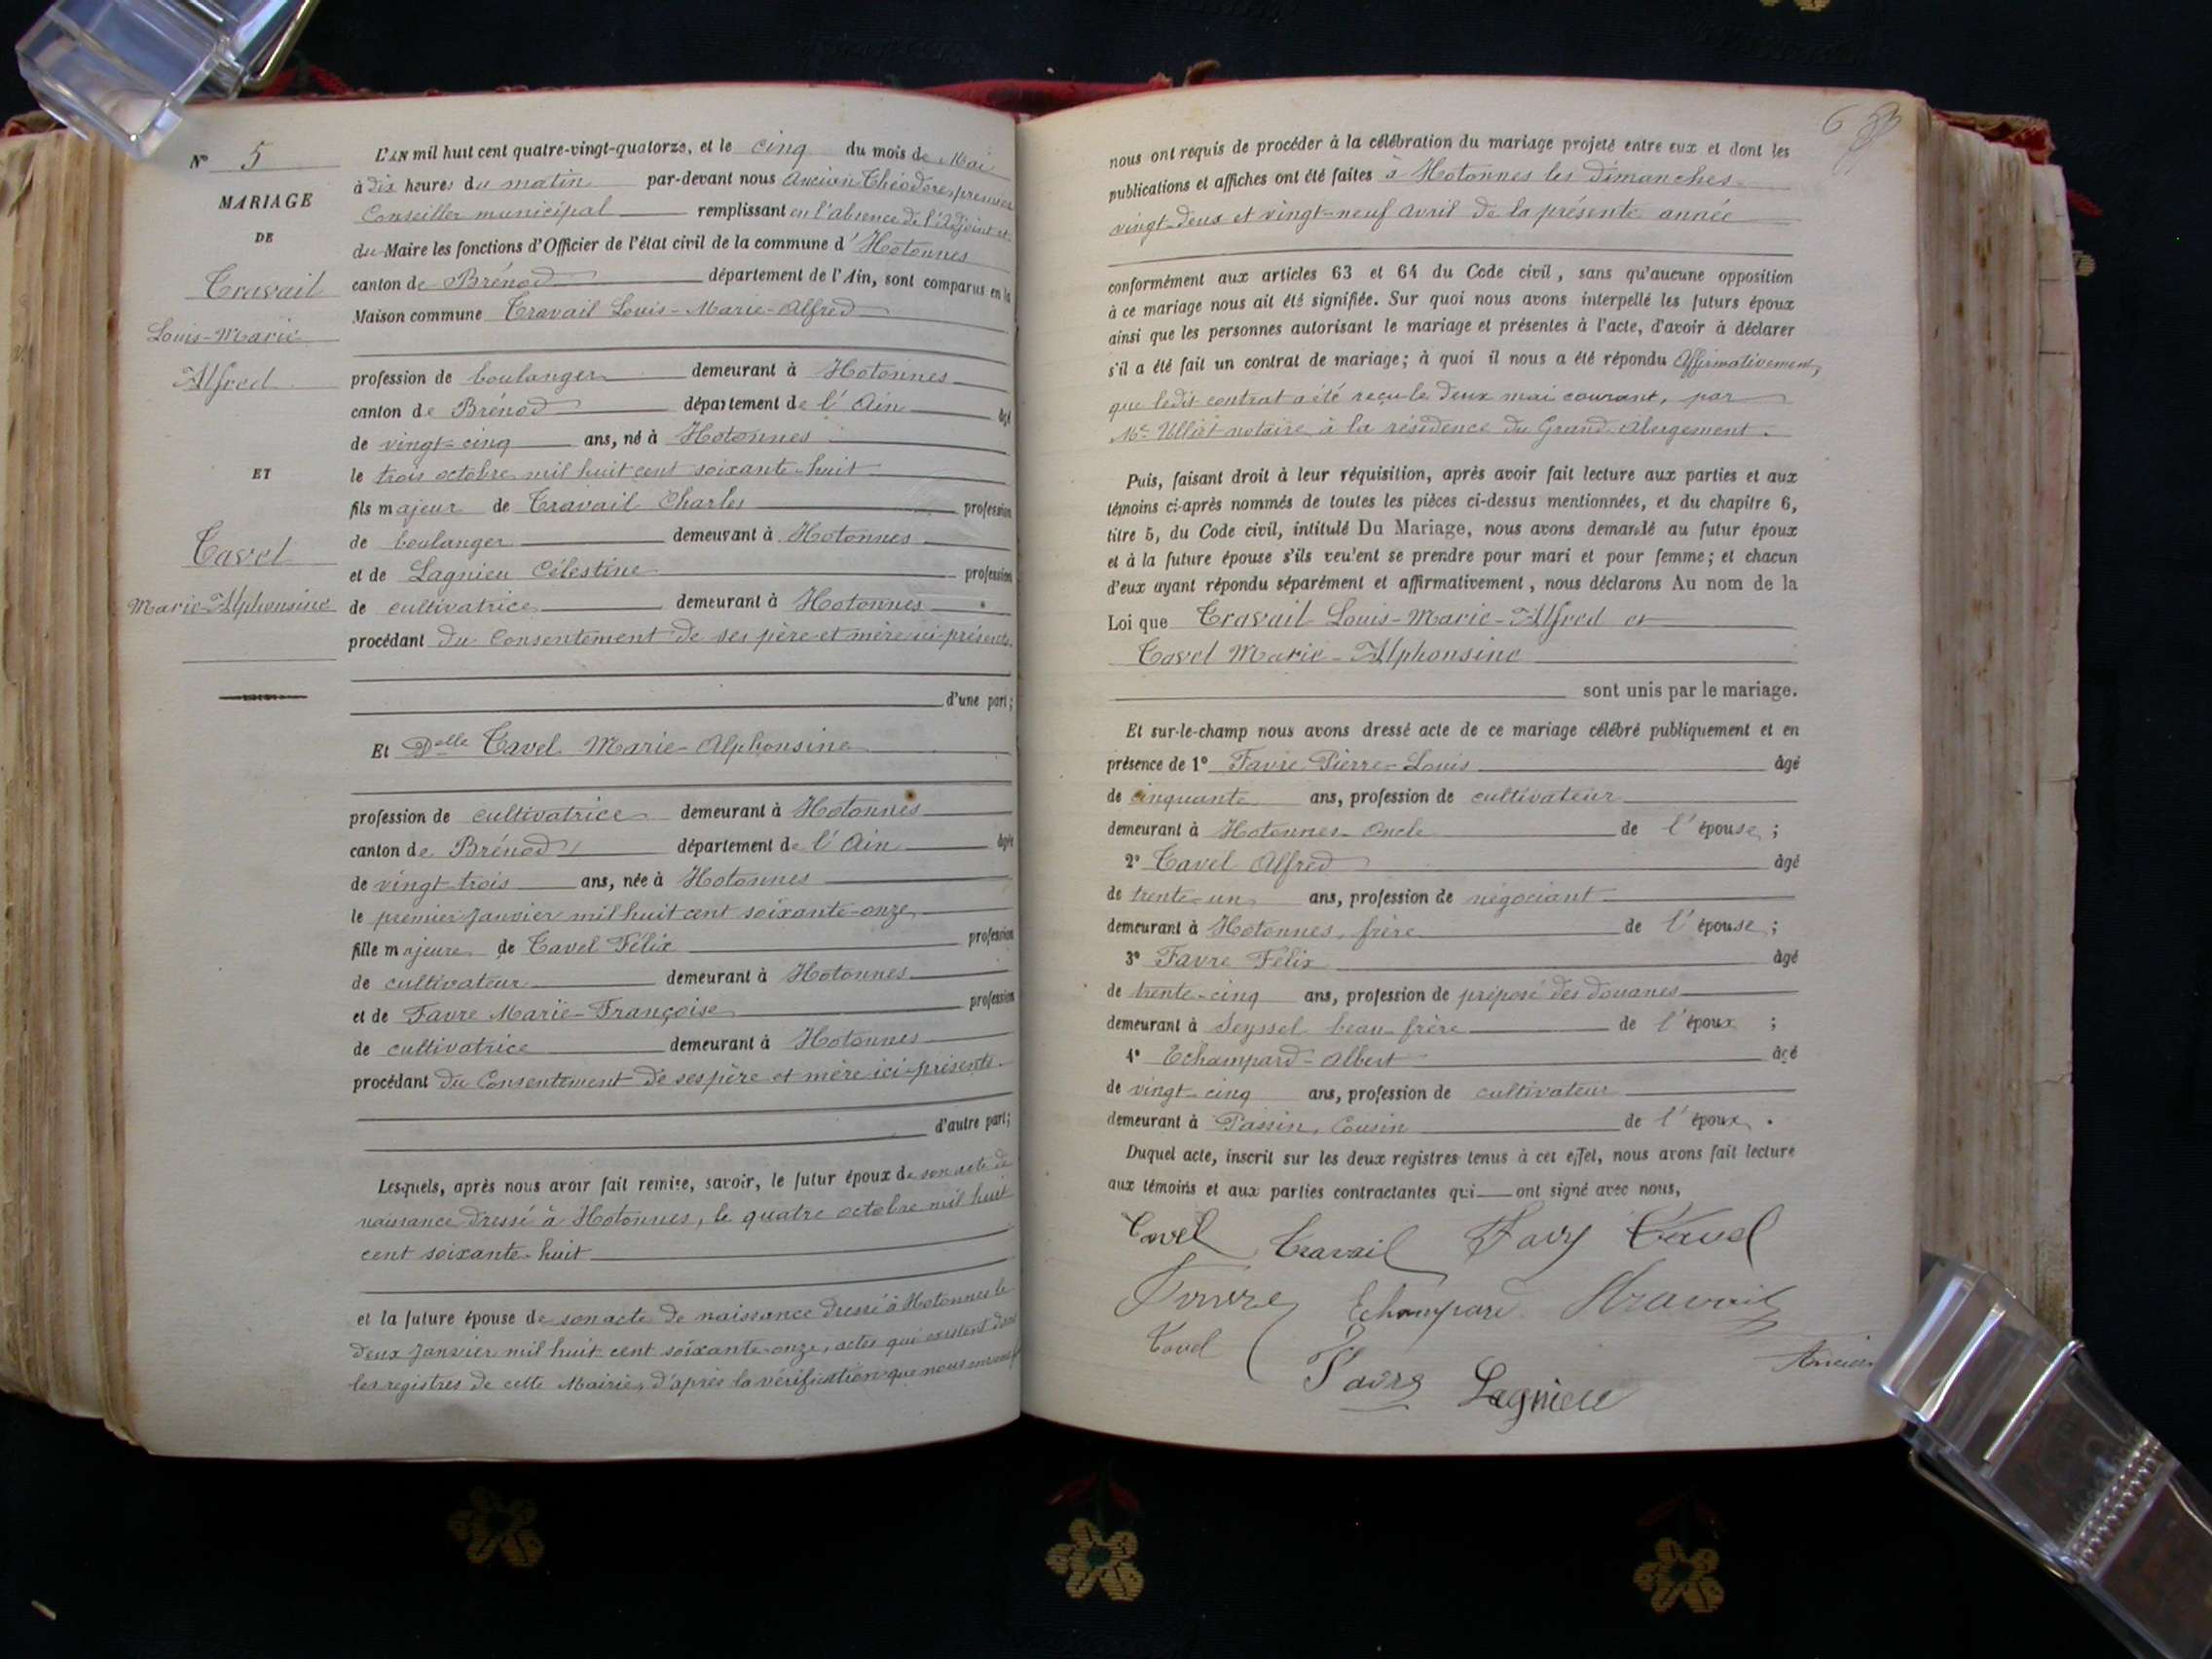 N° 5
MARIAGE
DE
Travail
Louis-Marie
Alfred
ET
Tavel
Marie-Alphonsine
L'AN mil huit cent quatre-vingt-quatorze, et le cinq du mois de Mai
à dix heures du matin par-devant nous Ancian Théodore, premier
Conseiller municipal remplissant en l'absence de l'Adjoint et
du Maire les fonctions d'Officier de l'état civil de la commune d'Hotonnes
canton de Brénod département de l'Ain, sont comparus en la
Maison commune Travail Louis-Marie-Alfred
profession de boulanger demeurant à Hotonnes
canton de Brénod département de l'Ain âgé
de vingt-cinq ans, né à Hotonnes
le trois octobre mil huit cent soixante-huit
fils majeur de Travail Charles profession
de boulanger demeurant à Hotonnes
et de Lagnieu Célestine profession
de cultivatrice demeurant à Hotonnes
procédant du Consentement de ses père et mère ici présents.
d'une part;
Et Delle Tavel Marie-Alphonsine
profession de cultivatrice demeurant à Hotonnes
canton de Brénod département de l'Ain âgée
de vingt trois ans, née à Hotonnes
le premier Janvier mil huit cent soixante-onze
fille majeure de Tavel Félix profession
de cultivateur demeurant à Hotonnes
et de Favre Marie-Françoise profession
de cultivatrice demeurant à Hotonnes
procédant du Consentement de ses père et mère ici-présents.
d'autre part;
Lesquels, après nous avoir fait remise, savoir, le futur époux de son acte de
naissance dressé à Hotonnes, le quatre octobre mil huit
cent soixante-huit
et la future épouse de son acte de naissance dressé à Hotonnes le
deux Janvier mil huit cent soixante-onze, actes qui existent dans
les registres de cette Mairie, d'après la vérification que nous en avons
nous ont requis de procéder à la célébration du mariage projeté entre eux et dont les
publications et affiches ont été faites à Hotonnes les dimanches
vingt-deux et vingt-neuf avril de la présente année
conformément aux articles 63 et 64 du Code civil, sans qu'aucune opposition
à ce mariage nous ait été signifiée. Sur quoi nous avons interpellé les futurs époux
ainsi que les personnes autorisant le mariage et présentes à l'acte, d'avoir à déclarer
s'il a été fait un contrat de mariage; à quoi il nous a été répondu Affirmativement,
que ledit contrat a été reçu le deux mai courant, par
Me Ulliet notaire à la résidence du Grand-Abergement.
Puis, faisant droit à leur réquisition, après avoir fait lecture aux parties et aux
témoins ci-après nommés de toutes les pièces ci-dessus mentionnées, et du chapitre 6,
titre 5, du Code civil, intitulé Du Mariage, nous avons demandé au futur époux
et à la future épouse s'ils veulent se prendre pour mari et pour femme; et chacun
d'eux ayant répondu séparément et affirmativement, nous déclarons Au nom de la
Loi que Travail Louis-Marie-Alfred et
Tavel Marie-Alphonsine
sont unis par le mariage.
Et sur-le-champ nous avons dressé acte de ce mariage célébré publiquement et en
présence de 1° Favre Pierre-Louis âgé
de cinquante ans, profession de cultivateur
demeurant à Hotonnes Oncle de l'épouse;
2° Tavel Alfred âgé
de trente-un ans, profession de négociant
demeurant à Hotonnes, frère de l'épouse;
3° Favre Félix âgé
de trente-cinq ans, profession de préposé des douanes
demeurant à Seyssel beau-frère de l'époux;
4° Echampard-Albert âgé
de vingt-cinq ans, profession de cultivateur
demeurant à Passin, Cousin de l'époux.
Duquel acte, inscrit sur les deux registres tenus à cet effet, nous avons fait lecture
aux témoins et aux parties contractantes qui ont signé avec nous,
Tavel Travail Favre Tavel
Favre Echampard Travail
Tavel Favre Lagnieu Ancian